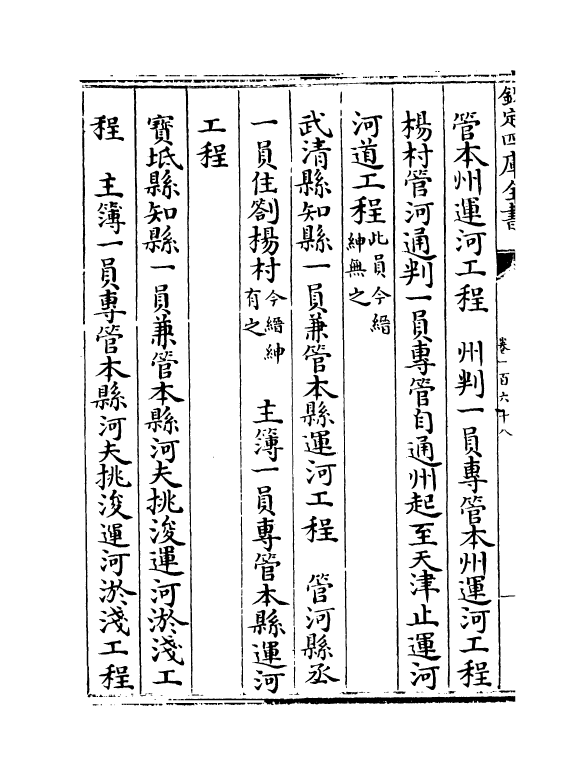 欽定四庫全書
卷一百六十八
管本州運河工程　州判一員專管本州運河工程
楊村管河通判一員專管自通州起至天津止運河
河道工程此員今縉紳無之
武清縣知縣一員兼管本縣運河工程　管河縣丞
一員住劄楊村今縉紳有之　主簿一員專管本縣運河
工程
寶坻縣知縣一員兼管本縣河夫挑浚運河淤淺工
程　主簿一員專管本縣河夫挑浚運河淤淺工程